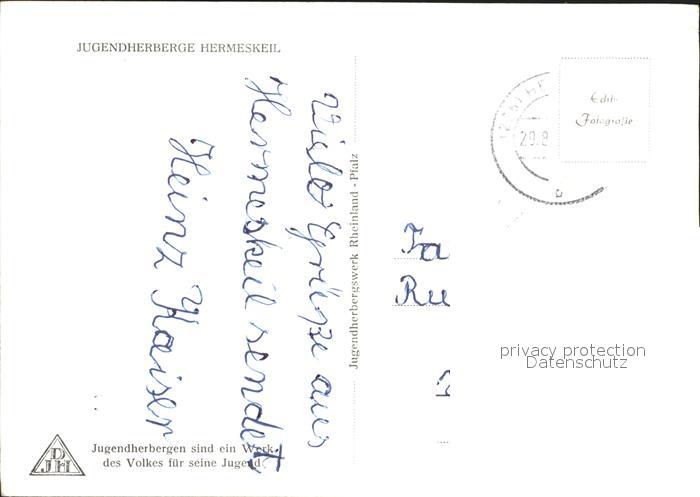 JUGENDHERBERGE HERMESKEIL
Viele Grüße aus
Hermeskeil sendet
Heinz Kaiser
Jugendherbergswerk Rheinland-Pfalz
Echte
Fotografie
29.8
b
Fa
Ru
privacy protection
Datenschutz
DJH
Jugendherbergen sind ein Werk
des Volkes für seine Jugend